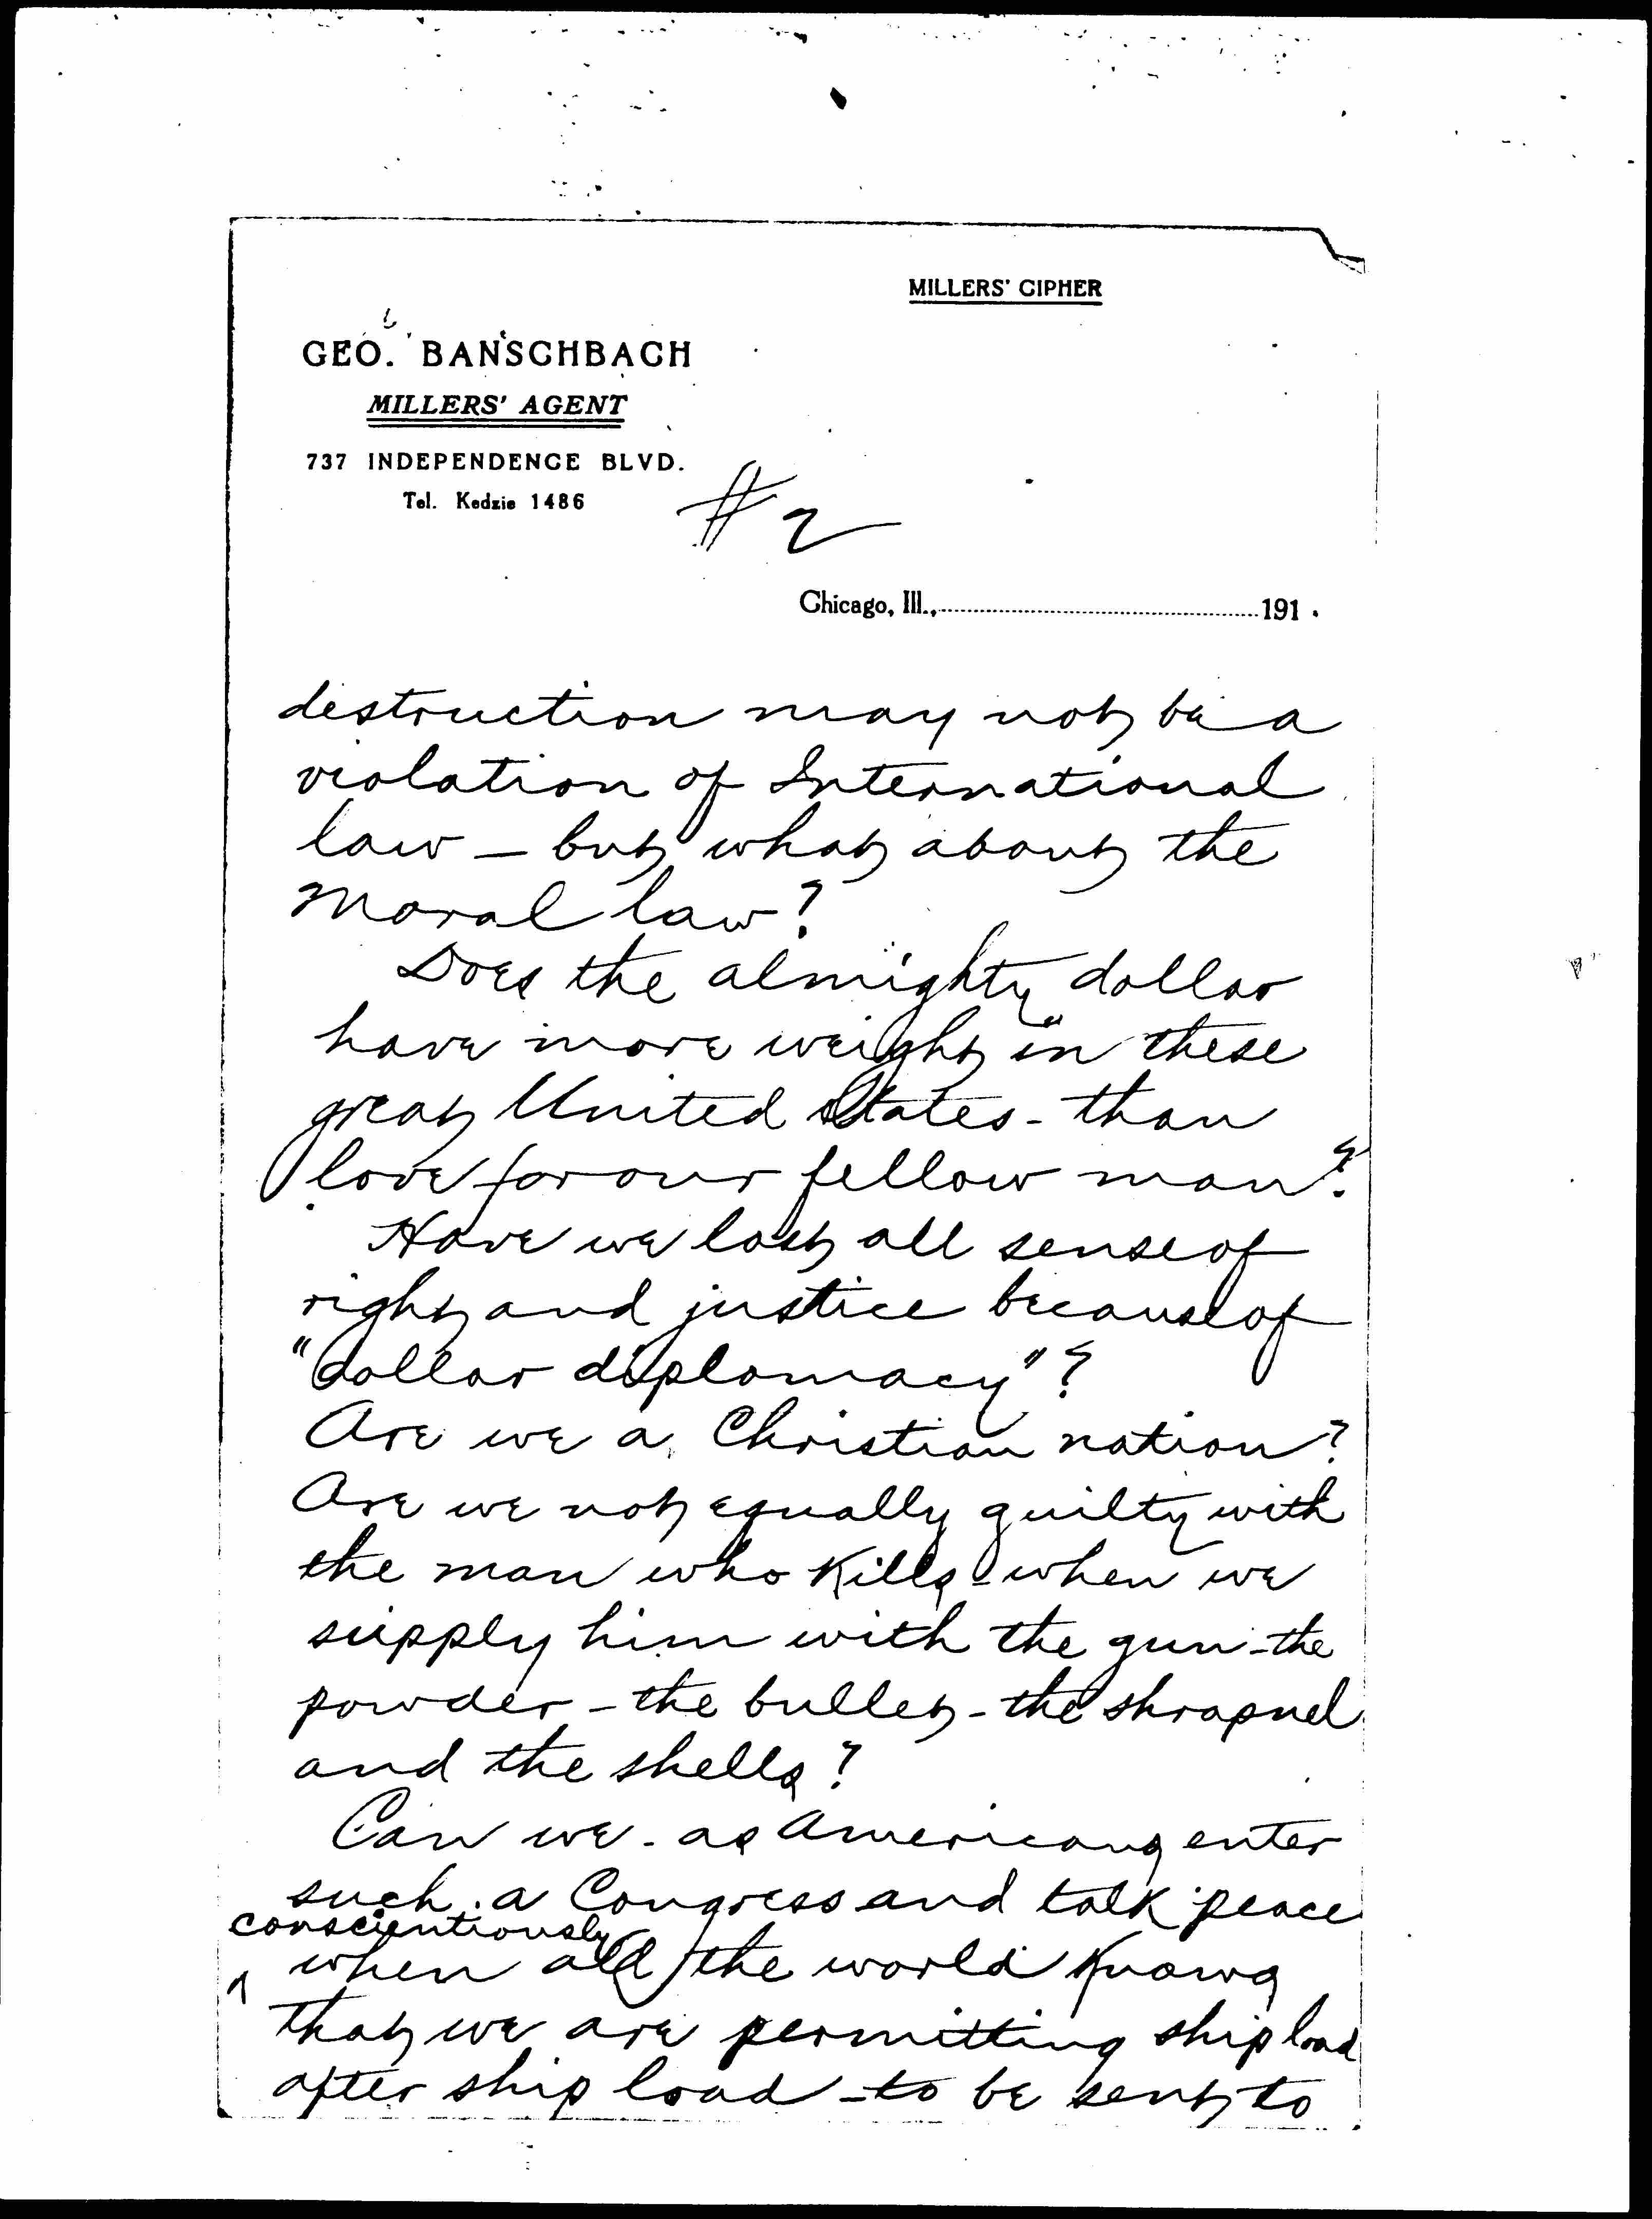 MILLERS' CIPHER
GEO. BANSCHBACH
MILLERS' AGENT
737 INDEPENDENCE BLVD.
Tel. Kedzie 1486
#2
Chicago, Ill., 191 .
destruction may not be a
violation of International
law — but what about the
Moral law?
Does the "almighty" dollar
have more weight in these
great United States - than
love for our fellow man?
Have we lost all sense of
right and justice because of
"dollar diplomacy"?
Are we a Christian nation?
Are we not equally guilty with
the man who Kills - when we
supply him with the gun - the
powder - the bullet - the shrapnel
and the shells?
Can we - as Americans enter
such a Congress and talk peace
conscientiously
^ when all the world Knows
that we are permitting ship load
after ship load - to be sent to